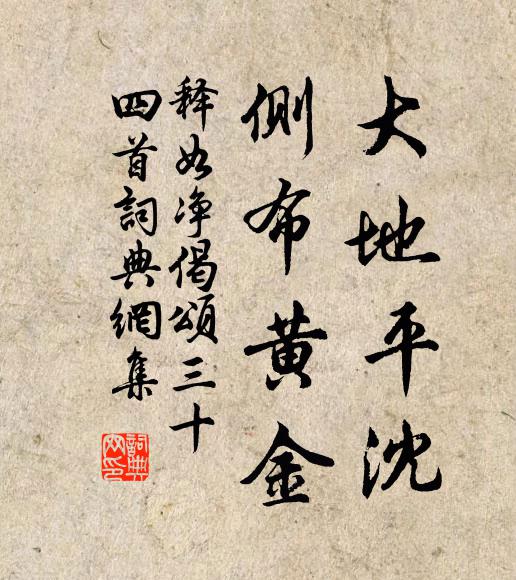 大地平沈
側布黄金
释如净偈頌三十
四首詞典網集
詞典网印